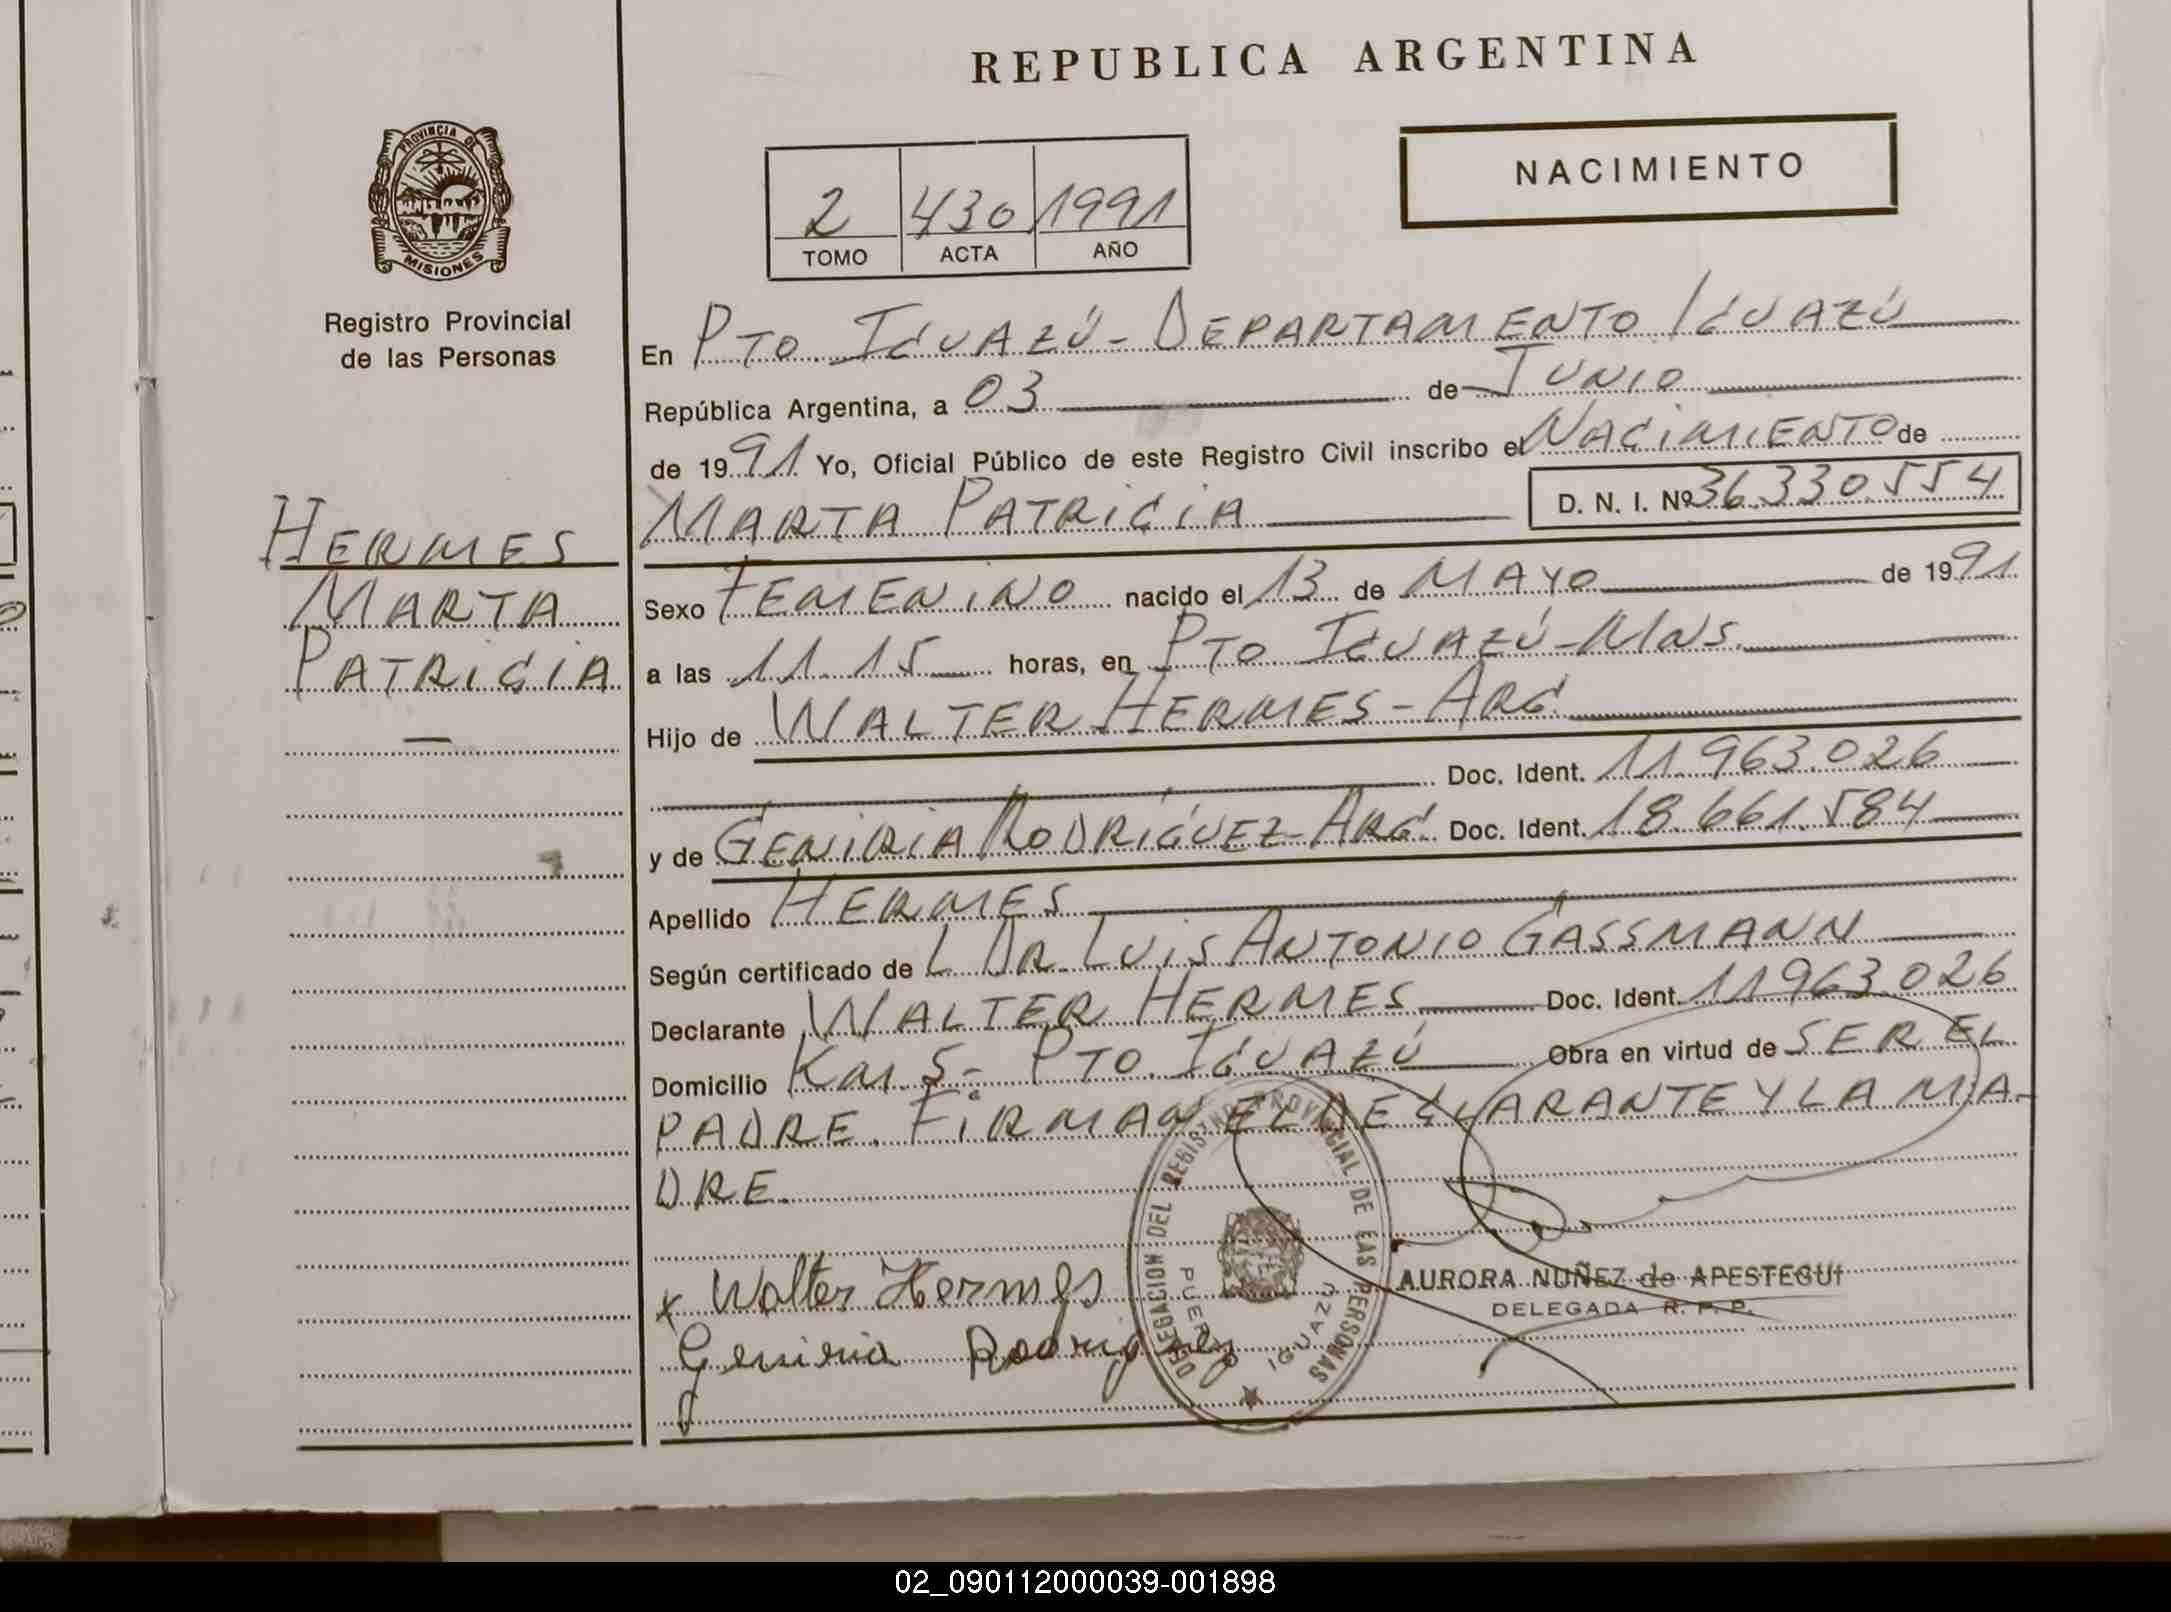 REPUBLICA ARGENTINA
NACIMIENTO
2 430 1991
TOMO ACTA AÑO
PROVINCIA DE
MISIONES
Registro Provincial
de las Personas
HERMES
MARTA
PATRICIA
—
En PTO. IGUAZÚ - DEPARTAMENTO IGUAZÚ
República Argentina, a 03 de JUNIO
de 1991 Yo, Oficial Público de este Registro Civil inscribo el NACIMIENTO de
MARTA PATRICIA D. N. I. Nº 36.330.554
Sexo FEMENINO nacido el 13 de MAYO de 1991
a las 11.15 horas, en PTO IGUAZÚ - MNS.
Hijo de WALTER HERMES - ARG.
Doc. Ident. 11.963.026
y de GENIRIA RODRÍGUEZ - ARG. Doc. Ident. 18.661.584
Apellido HERMES
Según certificado de L DR. LUIS ANTONIO GASSMANN
Declarante WALTER HERMES Doc. Ident. 11963.026
Domicilio Km. 5 - PTO. IGUAZÚ Obra en virtud de SER EL
PADRE. FIRMAN EL DECLARANTE Y LA MA-
DRE.
x Walter Hermes
Geniria Rodriguez
DELEGACION DEL REGISTRO PROVINCIAL DE LAS PERSONAS
PUERTO IGUAZU
AURORA NUÑEZ de APESTEGUI
DELEGADA R. P. P.
02_090112000039-001898